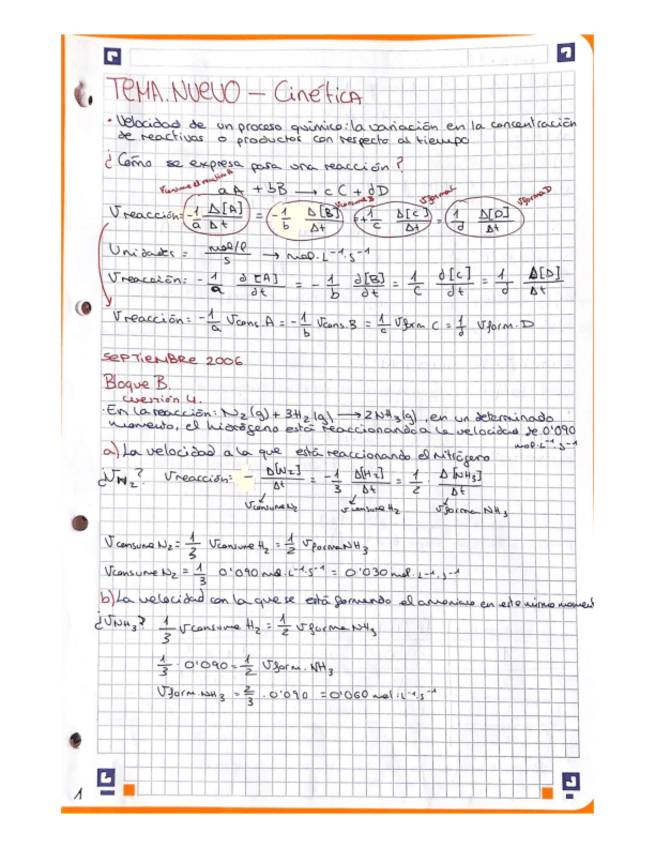 TEMA.NUEVO – Cinética
• Velocidad de un proceso químico: la variación en la concentración
de reactivos o productos con respecto al tiempo
¿Cómo se expresa para una reacción?
aA + bB ⟶ cC + dD
V reacción: -1/a Δ[A]/Δt = -1/b Δ[B]/Δt = +1/c Δ[C]/Δt = 1/d Δ[D]/Δt
Unidades = mol/l / s → mol·L⁻¹·s⁻¹
V reacción: -1/a d[A]/dt = -1/b d[B]/dt = 1/c d[C]/dt = 1/d Δ[D]/Δt
V reacción: -1/a Vcons.A = -1/b Vcons.B = 1/c Vform.C = 1/d Vform.D
SEPTIEMBRE 2006
Bloque B.
cuestión 4.
En la reacción: N₂(g) + 3H₂(g) ⟶ 2NH₃(g), en un determinado
momento, el hidrógeno está reaccionando a la velocidad de 0'090
mol·L⁻¹·s⁻¹
a) La velocidad a la que está reaccionando el Nitrógeno
¿V N₂? V reacción: - Δ[N₂]/Δt = -1/3 Δ[H₂]/Δt = 1/2 · Δ[NH₃]/Δt
Vconsume N₂ Vconsume H₂ Vforma NH₃
Vconsume N₂ = 1/3 Vconsume H₂ = 1/2 Vforma NH₃
Vconsume N₂ = 1/3 0'090 mol·L⁻¹·s⁻¹ = 0'030 mol·L⁻¹·s⁻¹
b) La velocidad con la que se está formando el amoniaco en este mismo moment
¿V NH₃? 1/3 Vconsume H₂ = 1/2 Vforma NH₃
1/3 · 0'090 = 1/2 Vform. NH₃
Vform.NH₃ = 2/3 · 0'090 = 0'060 mol·L⁻¹·s⁻¹
1